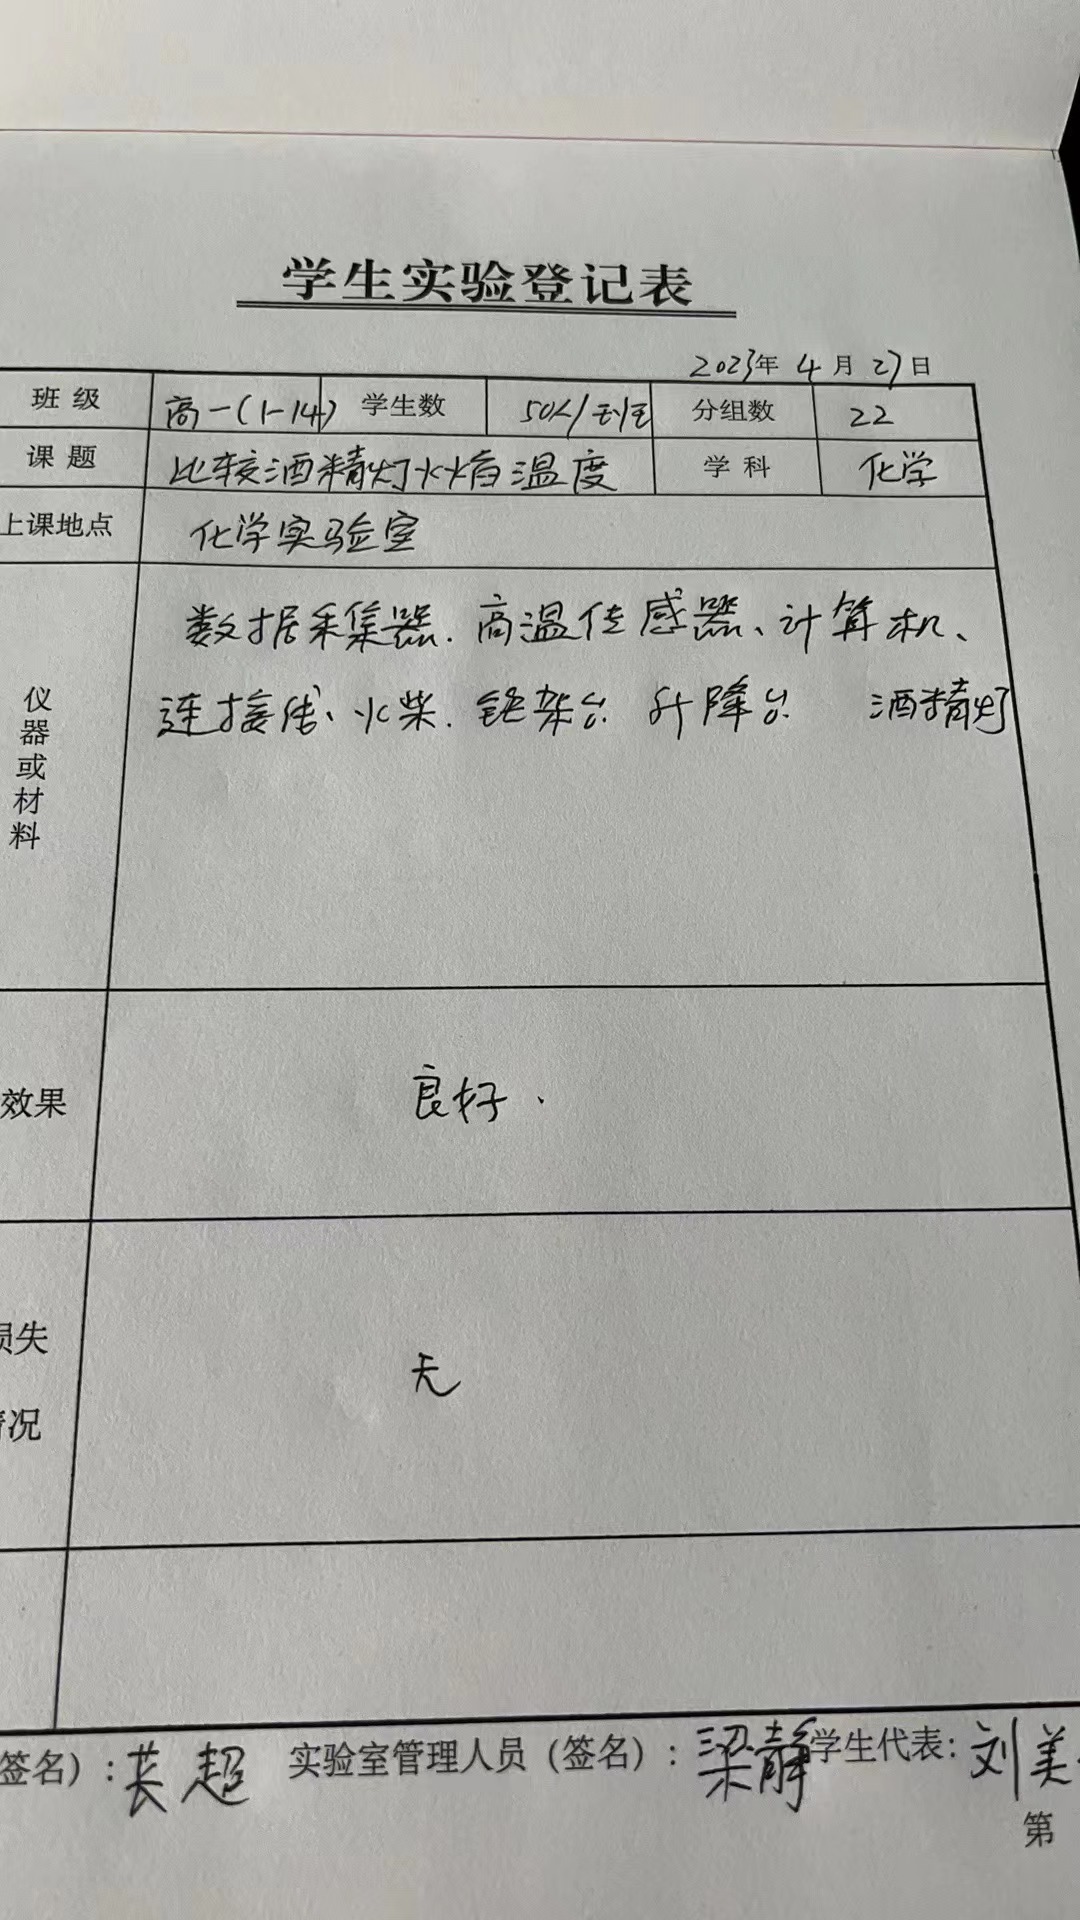 学生实验登记表
2023年 4月27日
班级 高一(1-14) 学生数 50人/班 分组数 22
课题 比较酒精灯火焰温度 学科 化学
上课地点 化学实验室
仪器或材料 数据采集器.高温传感器、计算机、
连接线、火柴.铁架台 升降台 酒精灯
效果 良好.
损失 无
情况
签名）: 超 实验室管理人员（签名）: 梁静 学生代表: 刘美
第